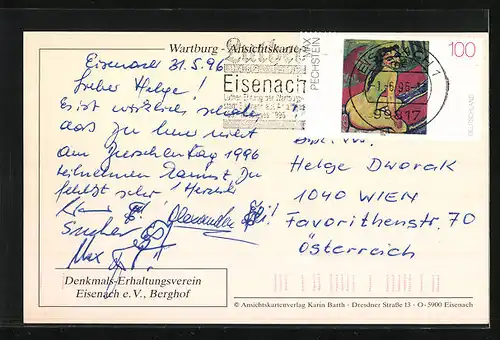 Wartburg - Ansichtskarte
Eisenach 31.5.96
Lieber Helge!
Es ist wirklich schade!
dass Du hier nicht
am Burschentag 1996
teilnehmen kannst. Du
fehlst sehr! Herzlich
Alexander
Max
Denkmals-Erhaltungsverein
Eisenach e.V., Berghof
Eisenach
1996
MAX
PECHSTEIN
100
DEUTSCHLAND
EISENACH 1
99817
Helge Dworak
1040 WIEN
Favoritenstr. 70
Österreich
© Ansichtskartenverlag Karin Barth - Dresdner Straße 13 - O-5900 Eisenach